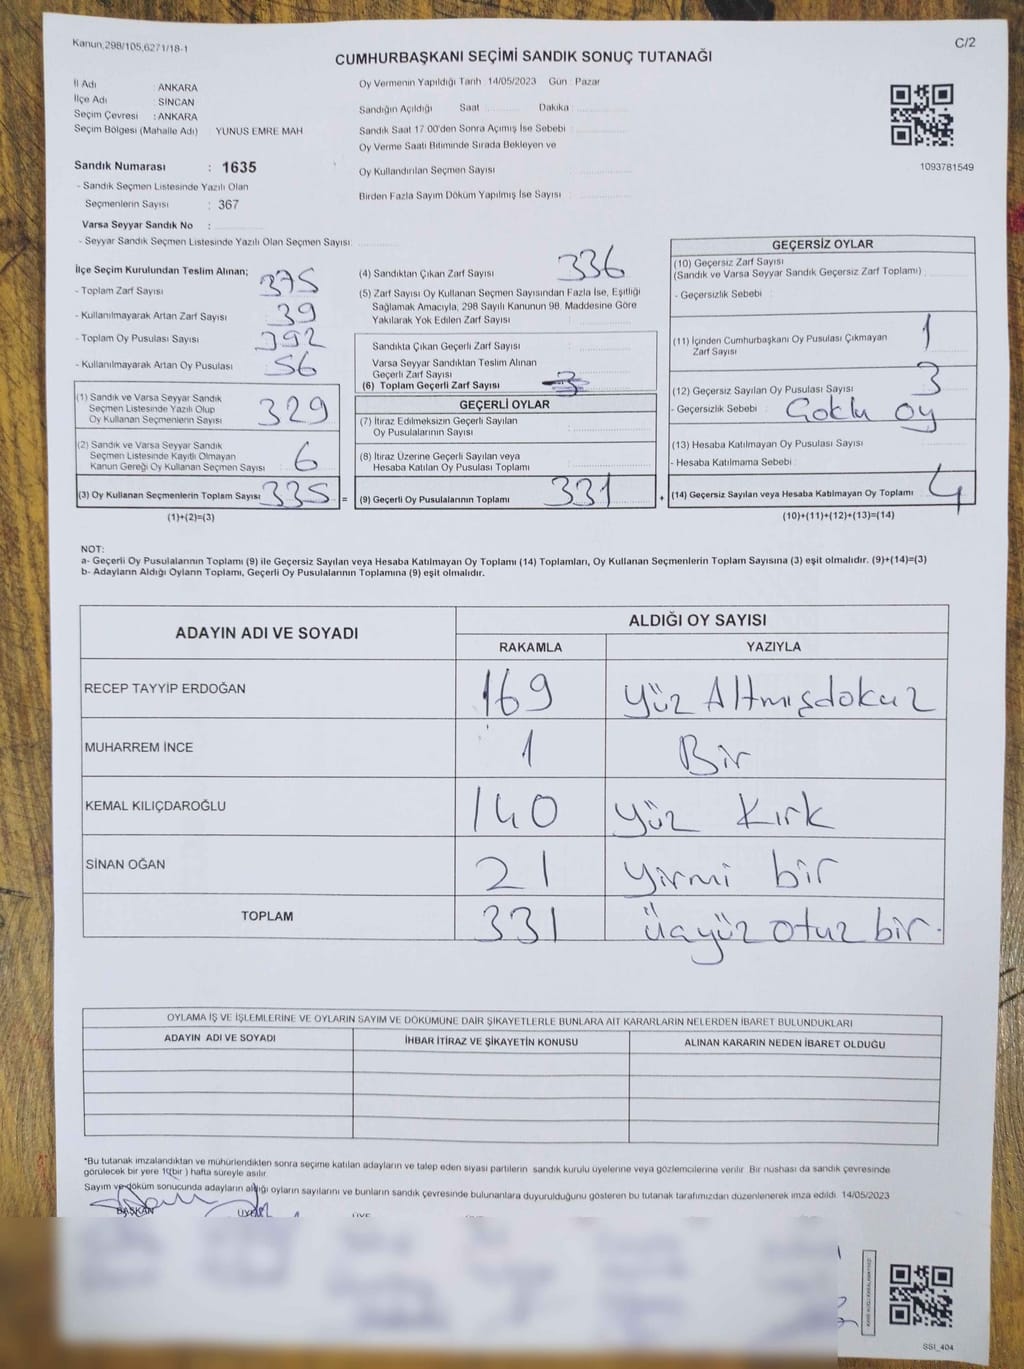 Kanun,298/105,6271/18-1
C/2
CUMHURBAŞKANI SEÇİMİ SANDIK SONUÇ TUTANAĞI
İl Adı ANKARA
İlçe Adı SİNCAN
Seçim Çevresi : ANKARA
Seçim Bölgesi (Mahalle Adı) YUNUS EMRE MAH
Sandık Numarası : 1635
- Sandık Seçmen Listesinde Yazılı Olan
Seçmenlerin Sayısı : 367
Varsa Seyyar Sandık No :
- Seyyar Sandık Seçmen Listesinde Yazılı Olan Seçmen Sayısı
Oy Vermenin Yapıldığı Tarih 14/05/2023 Gün : Pazar
Sandığın Açıldığı Saat Dakika
Sandık Saat 17 00'den Sonra Açımış İse Sebebi
Oy Verme Saati Bitiminde Sırada Bekleyen ve
Oy Kullandırılan Seçmen Sayısı
Birden Fazla Sayım Döküm Yapılmış İse Sayısı
1093781549
İlçe Seçim Kurulundan Teslim Alınan;
- Toplam Zarf Sayısı 375
- Kullanılmayarak Artan Zarf Sayısı 39
- Toplam Oy Pusulası Sayısı 392
- Kullanılmayarak Artan Oy Pusulası 56
(1) Sandık ve Varsa Seyyar Sandık
Seçmen Listesinde Yazılı Olup
Oy Kullanan Seçmenlerin Sayısı 329
(2) Sandık ve Varsa Seyyar Sandık
Seçmen Listesinde Kayıtlı Olmayan
Kanun Gereği Oy Kullanan Seçmen Sayısı 6
(3) Oy Kullanan Seçmenlerin Toplam Sayısı 335 =
(1)+(2)=(3)
(4) Sandıktan Çıkan Zarf Sayısı 336
(5) Zarf Sayısı Oy Kullanan Seçmen Sayısından Fazla İse, Eşitliği
Sağlamak Amacıyla, 298 Sayılı Kanunun 98. Maddesine Göre
Yakılarak Yok Edilen Zarf Sayısı
Sandıkta Çıkan Geçerli Zarf Sayısı
Varsa Seyyar Sandıktan Teslim Alınan
Geçerli Zarf Sayısı
(6) Toplam Geçerli Zarf Sayısı
GEÇERLİ OYLAR
(7) İtiraz Edilmeksizin Geçerli Sayılan
Oy Pusulalarının Sayısı
(8) İtiraz Üzerine Geçerli Sayılan veya
Hesaba Katılan Oy Pusulası Toplamı
(9) Geçerli Oy Pusulalarının Toplamı 331 +
GEÇERSİZ OYLAR
(10) Geçersiz Zarf Sayısı
(Sandık ve Varsa Seyyar Sandık Geçersiz Zarf Toplamı)
- Geçersizlik Sebebi
(11) İçinden Cumhurbaşkanı Oy Pusulası Çıkmayan
Zarf Sayısı 1
(12) Geçersiz Sayılan Oy Pusulası Sayısı 3
- Geçersizlik Sebebi : Çoklu oy
(13) Hesaba Katılmayan Oy Pusulası Sayısı
- Hesaba Katılmama Sebebi
(14) Geçersiz Sayılan veya Hesaba Katılmayan Oy Toplamı 4
(10)+(11)+(12)+(13)=(14)
NOT:
a- Geçerli Oy Pusulalarının Toplamı (9) ile Geçersiz Sayılan veya Hesaba Katılmayan Oy Toplamı (14) Toplamları, Oy Kullanan Seçmenlerin Toplam Sayısına (3) eşit olmalıdır. (9)+(14)=(3)
b- Adayların Aldığı Oyların Toplamı, Geçerli Oy Pusulalarının Toplamına (9) eşit olmalıdır.
ADAYIN ADI VE SOYADI ALDIĞI OY SAYISI
RAKAMLA YAZIYLA
RECEP TAYYİP ERDOĞAN 169 Yüz Altmışdokuz
MUHARREM İNCE 1 Bir
KEMAL KILIÇDAROĞLU 140 Yüz Kırk
SİNAN OĞAN 21 Yirmi bir
TOPLAM 331 Üçyüz otuz bir.
OYLAMA İŞ VE İŞLEMLERİNE VE OYLARIN SAYIM VE DÖKÜMÜNE DAİR ŞİKAYETLERLE BUNLARA AİT KARARLARIN NELERDEN İBARET BULUNDUKLARI
ADAYIN ADI VE SOYADI İHBAR İTİRAZ VE ŞİKAYETİN KONUSU ALINAN KARARIN NEDEN İBARET OLDUĞU
*Bu tutanak imzalandıktan ve mühürlendikten sonra seçime katılan adayların ve talep eden siyasi partilerin sandık kurulu üyelerine veya gözlemcilerine verilir. Bir nüshası da sandık çevresinde
görülecek bir yere 1(bir ) hafta süreyle asılır.
Sayım ve döküm sonucunda adayların aldığı oyların sayılarını ve bunların sandık çevresinde bulunanlara duyurulduğunu gösteren bu tutanak tarafımızdan düzenlenerek imza edildi. 14/05/2023
BAŞKAN ÜYE ÜYE
SSI_404